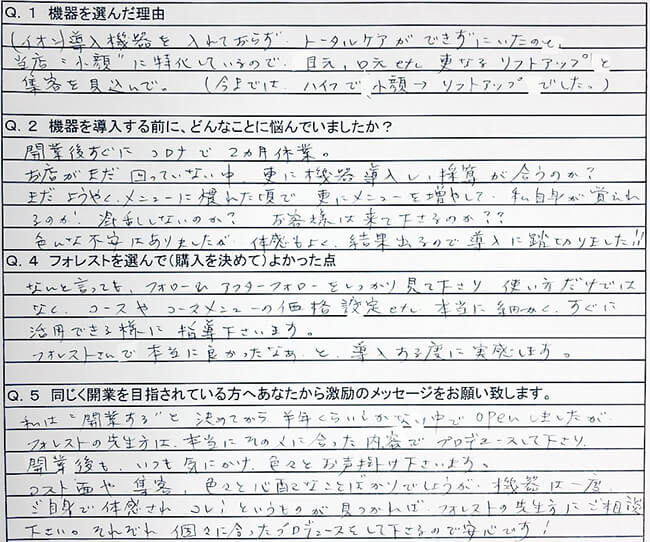 Q. 1 機器を選んだ理由
(イオン)導入機器を入れておらず、トータルケアができずにいたのと、
当店"小顔"に特化しているので、目元、口元etc 更なるリフトアップと
集客を見込んで。 (今までは、ハイフで小顔→リフトアップでした。)
Q. 2 機器を導入する前に、どんなことに悩んでいましたか？
開業後すぐにコロナで2カ月休業。
お店がまだ回っていない中、更に機器導入し、採算が合うのか?
まだようやくメニューに慣れた頃で更にメニューを増やして、私自身が覚えれ
るのか! 混乱しないのか? お客様は来て下さるのか??
色んな不安はありましたが、体感もよく、結果出るので導入に踏切りました!!
Q. 4 フォレストを選んで（購入を決めて）よかった点
なんと言っても、フォローup アフターフォローをしっかり見て下さり 使い方だけでは
なく、コースやコースメニューの価格設定etc 本当に細かく、すぐに
活用できる様に指導下さいます。
フォレストさんで本当に良かったなぁ、と、導入する度に実感します。
Q. 5 同じく開業を目指されている方へあなたから激励のメッセージをお願い致します。
私は"開業する"と決めてから、半年くらいしかない中でopenしましたが、
フォレストの先生方は、本当にその人に合った内容でプロデュースして下さり、
開業後も、いつも気にかけ、色々とお声掛け下さいます。
コスト面や集客、色々と心配なことばかりでしょうが、機器は一度、
ご自身で体感され コレ!というものが見つかれば、フォレストの先生方にご相談
下さい。それぞれ個々に合ったプロデュースをして下さるので安心です!